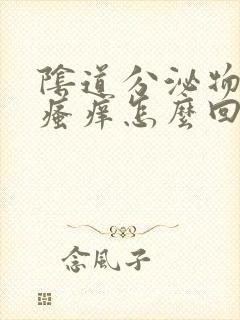 陰道分泌物
瘙痒怎麼回
念風子